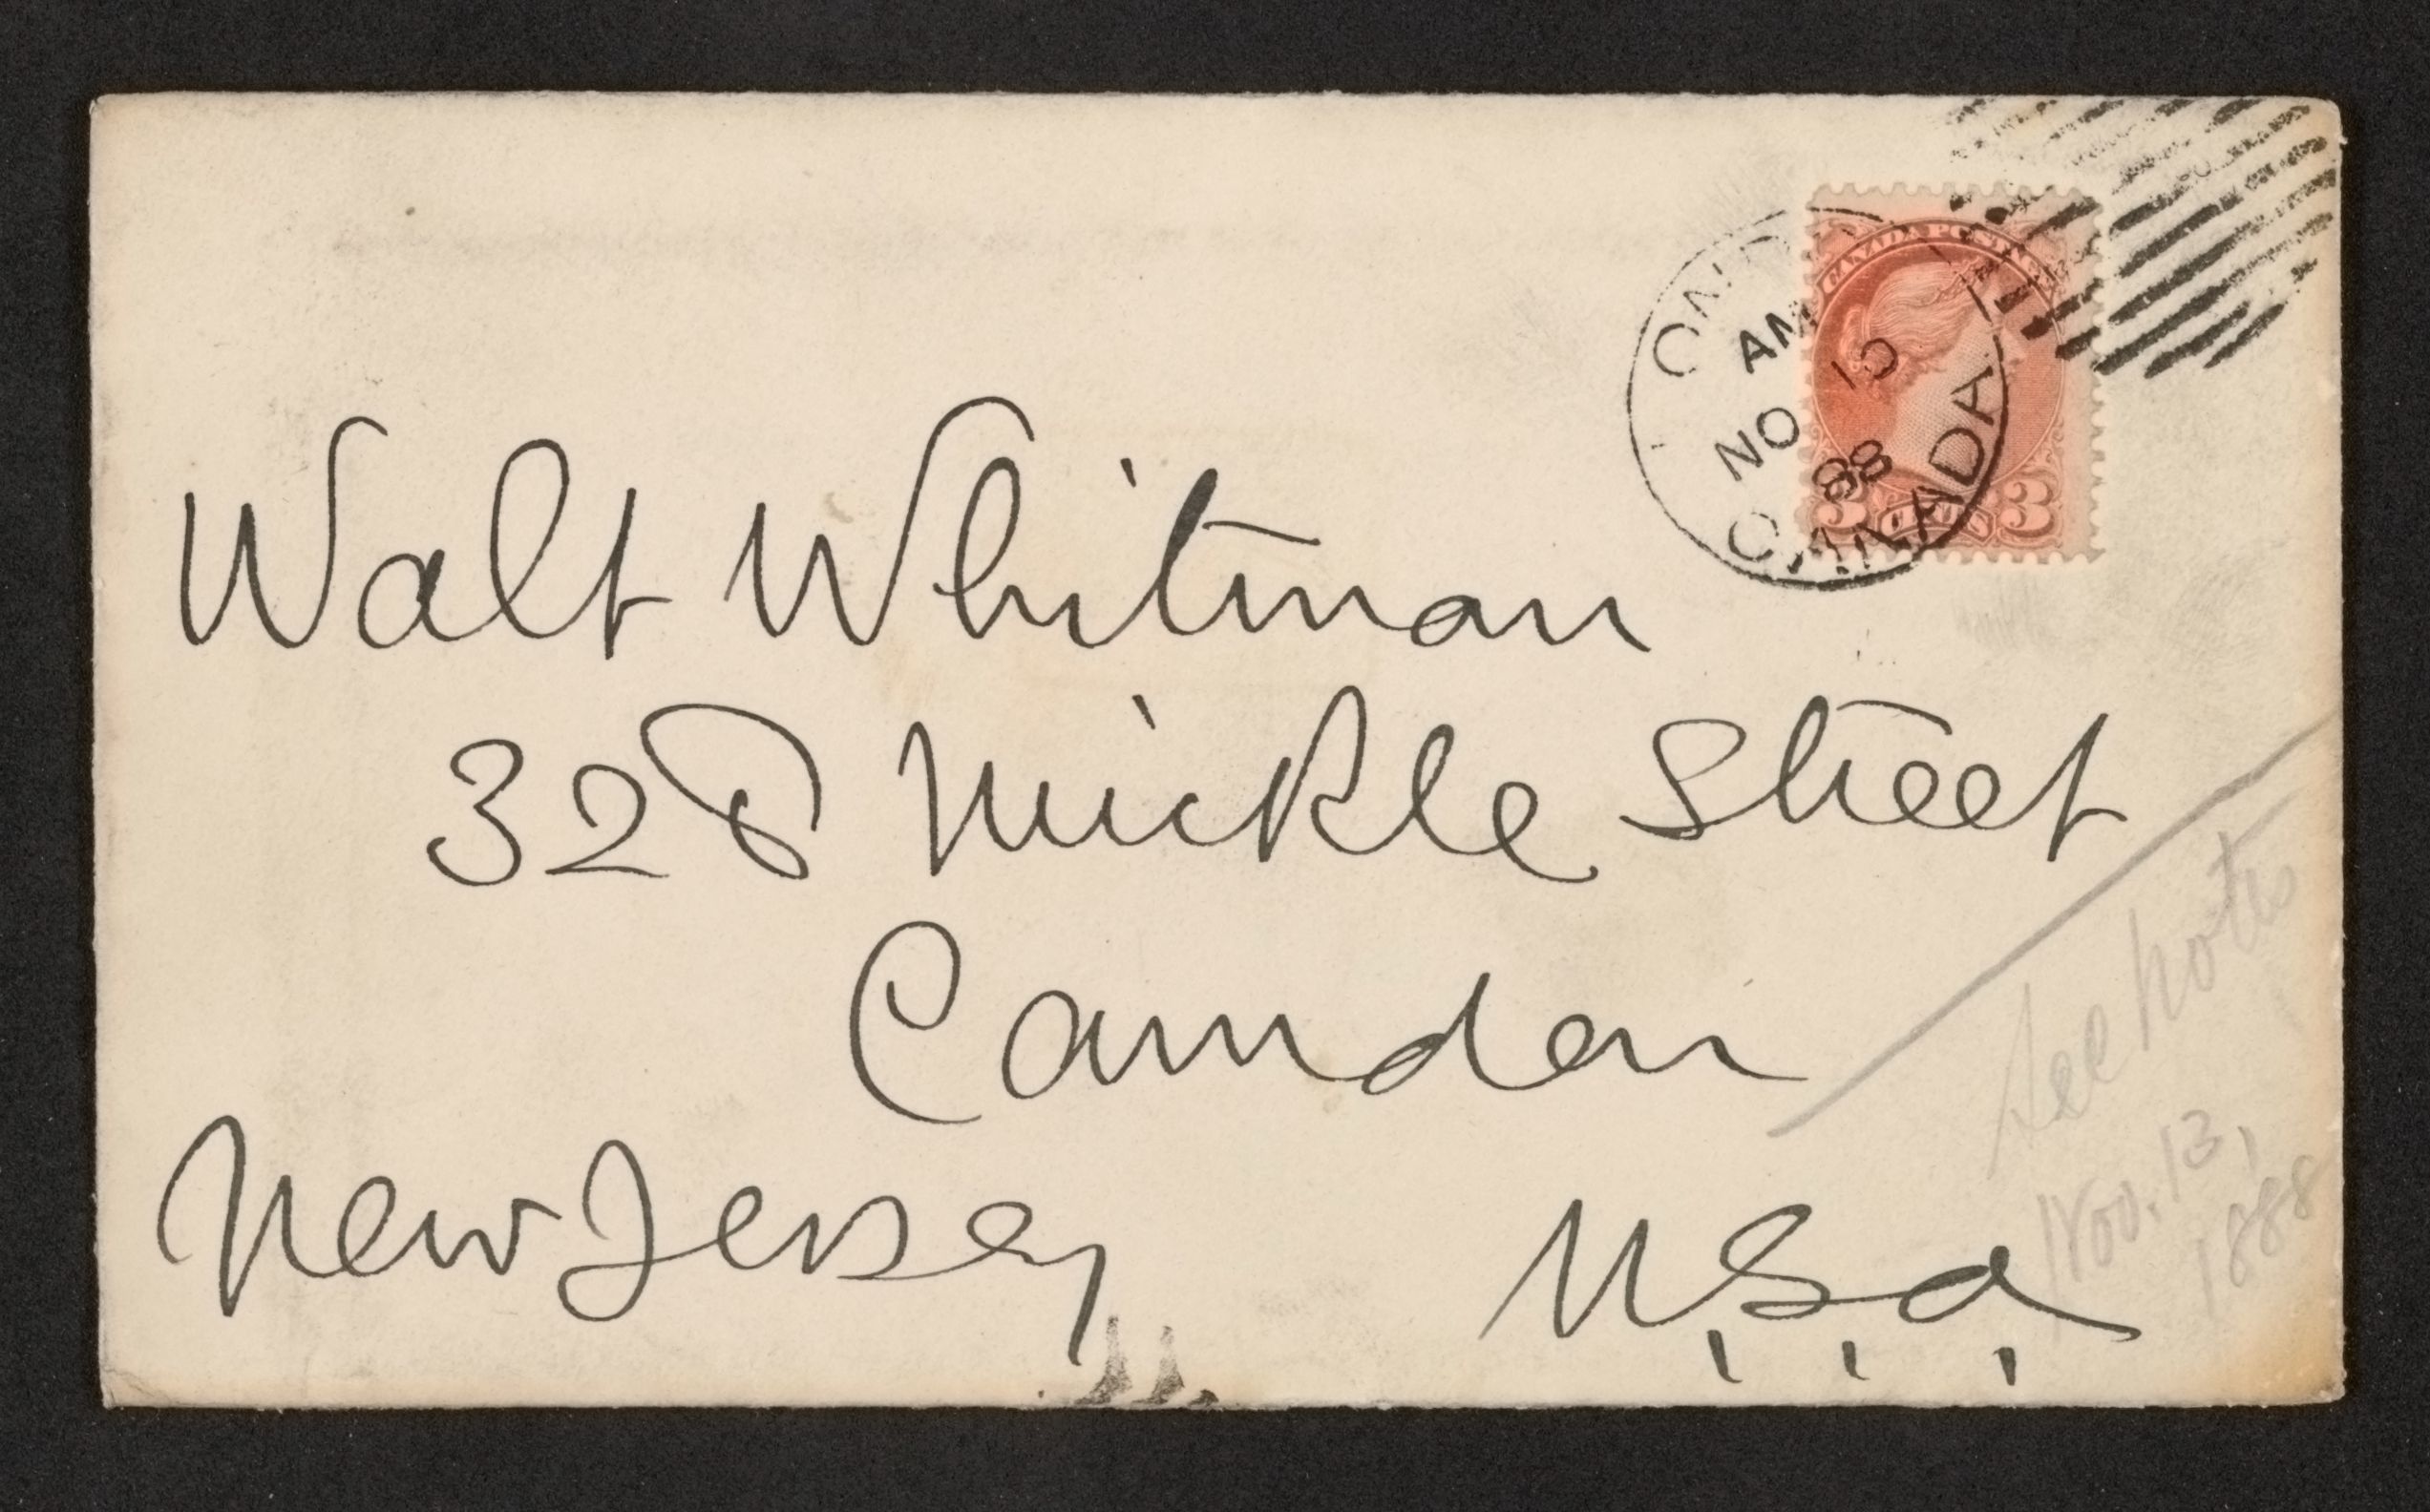 CANADA POSTAGE
AM 10
NO
88
CANADA
3 CENTS 3
Walt Whitman
328 Mickle Street
Camden
New Jersey
U.S.A.
See notes
Nov. 13,
1888